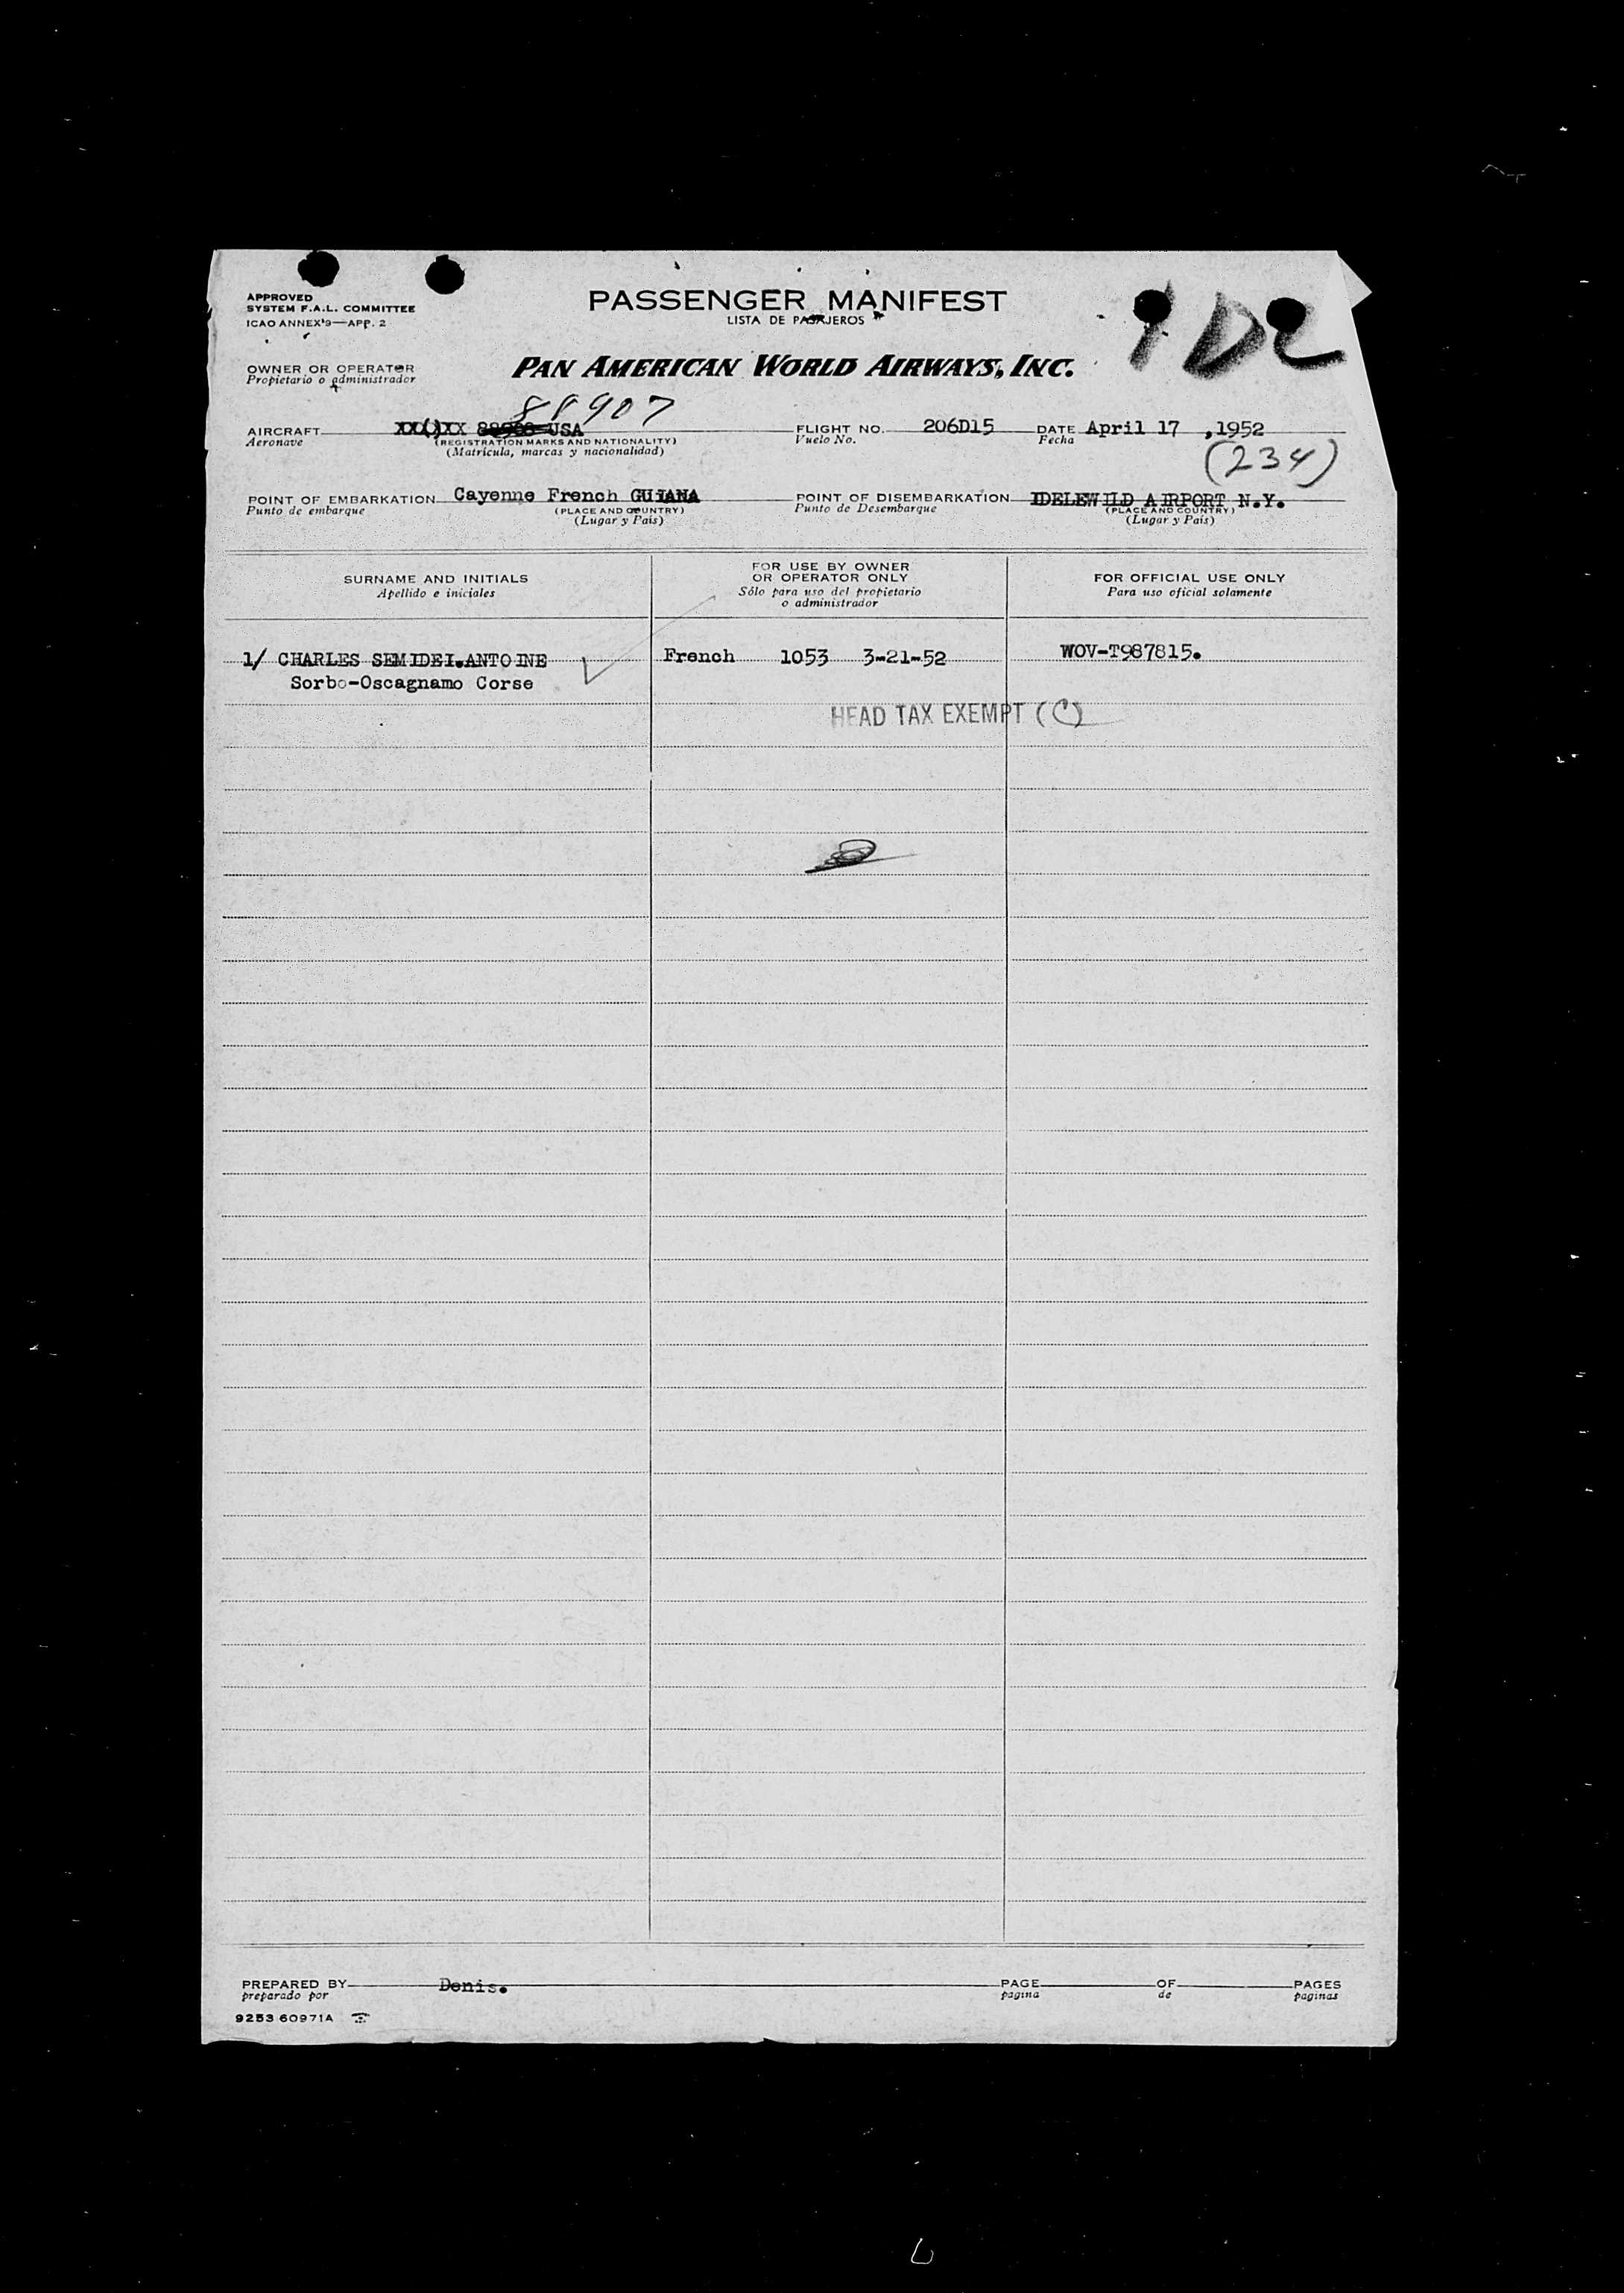 APPROVED
SYSTEM F.A.L. COMMITTEE
ICAO ANNEX'9—APP. 2
PASSENGER MANIFEST
LISTA DE PASAJEROS
1D2
OWNER OR OPERATOR
Propietario o administrador
PAN AMERICAN WORLD AIRWAYS, INC.
88907
AIRCRAFT USA
Aeronave
(REGISTRATION MARKS AND NATIONALITY)
(Matrícula, marcas y nacionalidad)
FLIGHT NO. 206D15
Vuelo No.
DATE April 17 ,1952
Fecha
(234)
POINT OF EMBARKATION Cayenne French GUIANA
Punto de embarque
(PLACE AND COUNTRY)
(Lugar y País)
POINT OF DISEMBARKATION IDELEWILD AIRPORT N.Y.
Punto de Desembarque
(PLACE AND COUNTRY)
(Lugar y País)
SURNAME AND INITIALS
Apellido e iniciales
FOR USE BY OWNER
OR OPERATOR ONLY
Sólo para uso del propietario
o administrador
FOR OFFICIAL USE ONLY
Para uso oficial solamente
1/ CHARLES SEMIDEI.ANTOINE French 1053 3-21-52 WOV-T987815.
Sorbo-Oscagnamo Corse
HEAD TAX EXEMPT (C)
PREPARED BY Denis.
preparado por
PAGE OF PAGES
pagina de paginas
9253 60971A